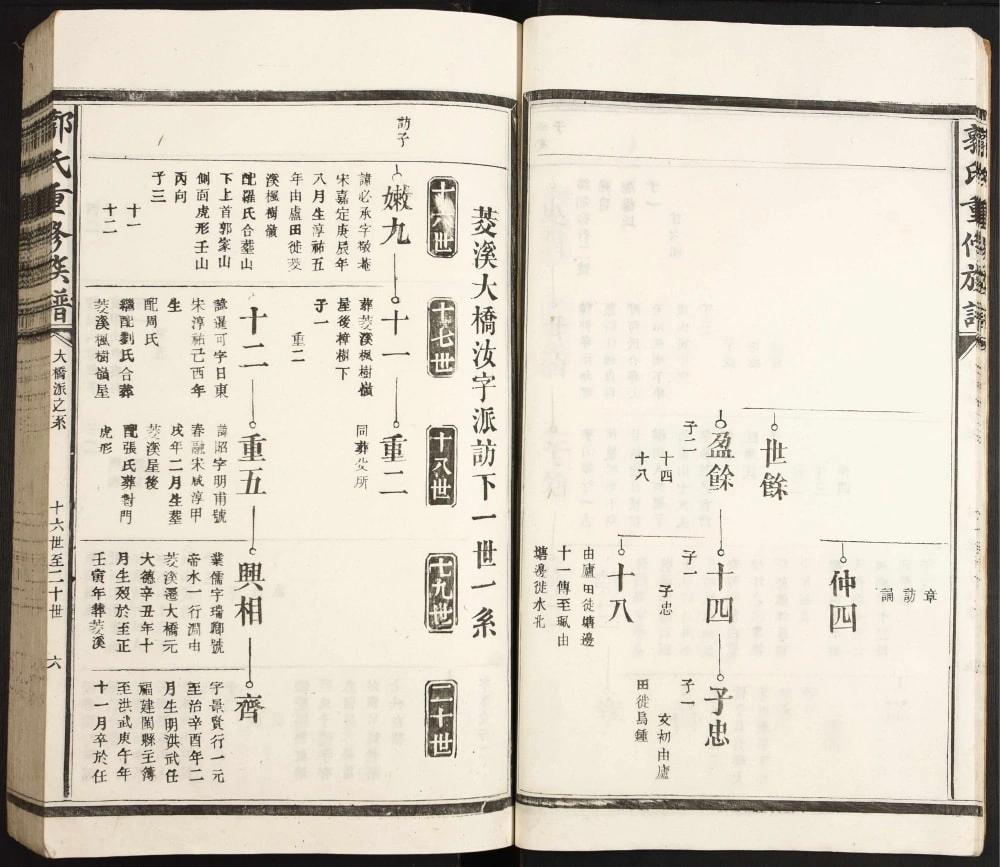 郭氏重修族譜
世餘
盈餘
子二
十四
十八
仲四
章
訪
誦
十四
子一
子忠
十八
由廬田徙塘邊
十一傳至珮由
塘邊徙水北
子忠
子一
文初由廬
田徙烏鍾
菱溪大橋汝字派訪下一世一系
十六世
十七世
十八世
十九世
二十世
訪子
嫩九
諱必承字敬菴
宋嘉定庚辰年
八月生淳祐五
年由盧田徙菱
溪楓樹嶺
配羅氏合塟山
下上首郭家山
側面虎形壬山
丙向
子三
十一
十二
十一
葬菱溪楓樹嶺
屋後樟樹下
子一
重二
重二
同葬父所
十二
諱暹可字日東
宋淳祐己酉年
生
配周氏
繼配劉氏合葬
菱溪楓樹嶺屋
虎形
重五
諱詔字明甫號
春融宋咸淳甲
戌年二月生塟
菱溪屋後
配張氏葬對門
興相
業儒字瑞卿號
帝水一行淵由
菱溪遷大橋元
大德辛丑年十
月生歿於至正
壬寅年葬菱溪
齊
字景賢行一元
至治辛酉年二
月生明洪武任
福建閩縣主簿
至洪武庚午年
十一月卒於任
郭氏重修族譜
大橋派之系
十六世至二十世
六